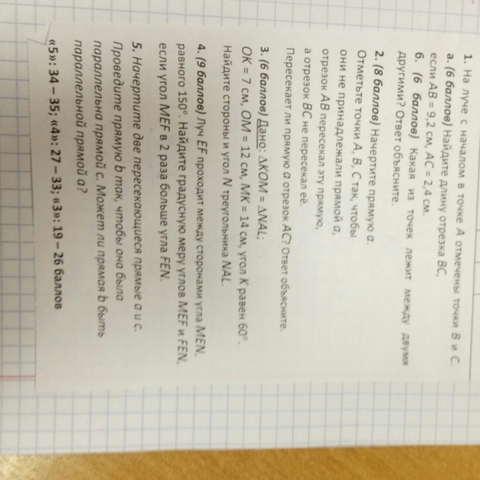 1. На луче с началом в точке A отмечены точки B и C.
а. (6 баллов) Найдите длину отрезка BC,
если AB = 9,2 см, AC = 2,4 см.
б. (6 баллов) Какая из точек лежит между двумя
другими? Ответ объясните.
2. (8 баллов) Начертите прямую a.
Отметьте точки A, B, C так, чтобы
они не принадлежали прямой a,
отрезок AB пересекал эту прямую,
а отрезок BC не пересекал её.
Пересекает ли прямую a отрезок AC? Ответ объясните.
3. (6 баллов) Дано: ΔKOM = ΔNAL;
OK = 7 см, OM = 12 см, MK = 14 см, угол K равен 60°.
Найдите стороны и угол N треугольника NAL.
4. (9 баллов) Луч EF проходит между сторонами угла MEN,
равного 150°. Найдите градусную меру углов MEF и FEN,
если угол MEF в 2 раза больше угла FEN.
5. Начертите две пересекающиеся прямые a и c.
Проведите прямую b так, чтобы она была
параллельна прямой c. Может ли прямая b быть
параллельной прямой a?
«5»: 34 – 35; «4»: 27 – 33; «3»: 19 – 26 баллов